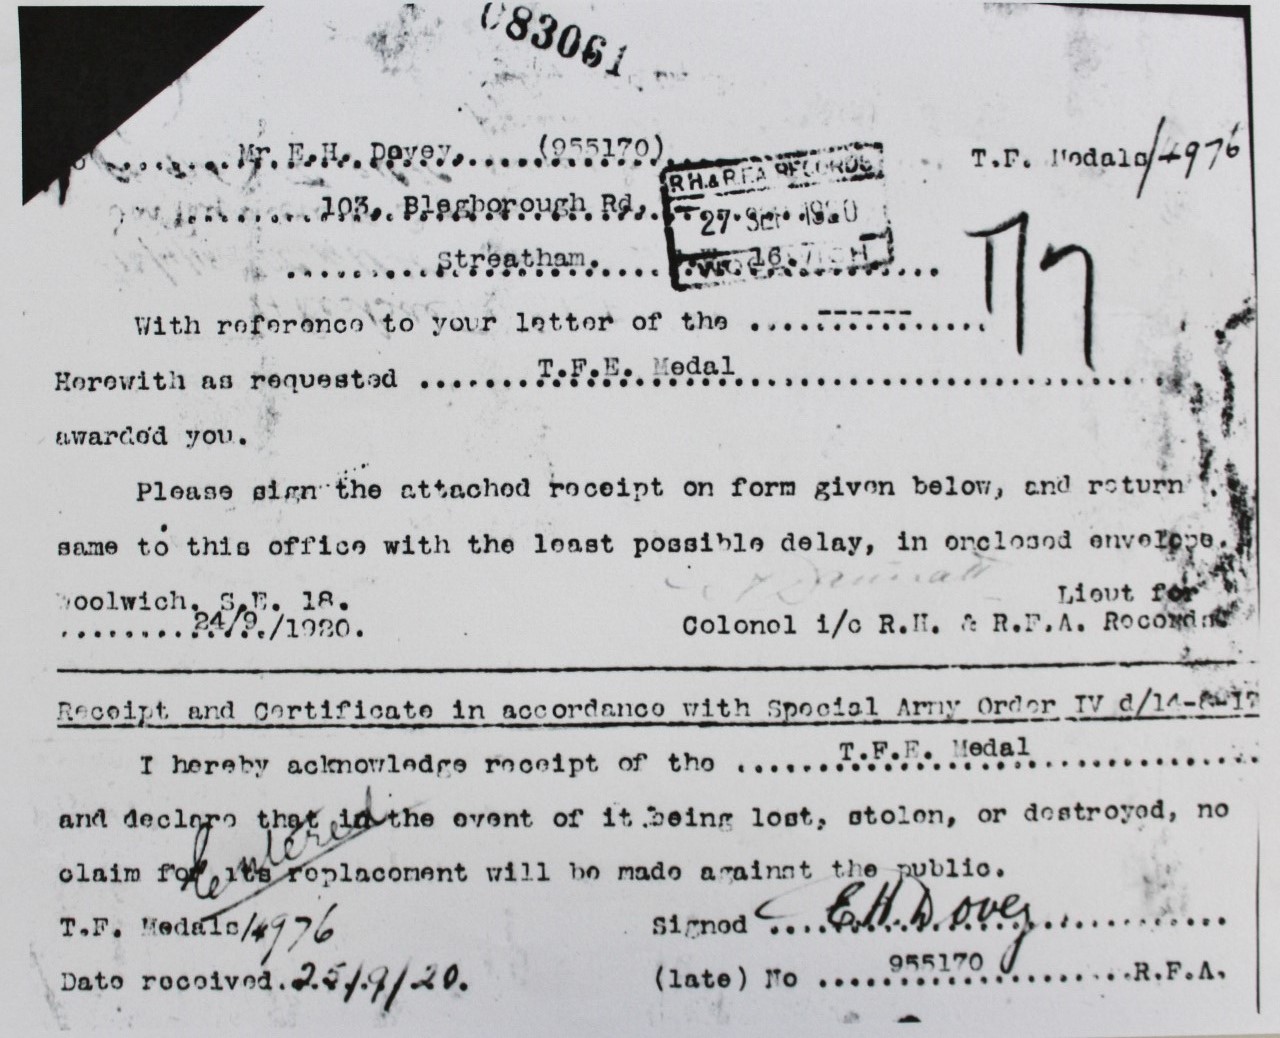 083061
Mr. E.H. Dovey. (955170)
T.F. Medals/4976
R.H.& R.F.A. RECORDS
103, Blegborough Rd,
27 SEP 1920
Streatham.
With reference to your letter of the ------
Herewith as requested T.F.E. Medal
awarded you.
Please sign the attached receipt on form given below, and return
same to this office with the least possible delay, in enclosed envelope.
Woolwich. S.E. 18.
Lieut for
24/9/1920.
Colonel i/c R.H. & R.F.A. Records
Receipt and Certificate in accordance with Special Army Order IV d/14-8-17
I hereby acknowledge receipt of the T.F.E. Medal
and declare that in the event of it being lost, stolen, or destroyed, no
claim for its replacement will be made against the public.
Entered
T.F. Medals/4976
Signed E.H. Dovey
Date received. 25/9/20.
(late) No 955170 R.F.A.